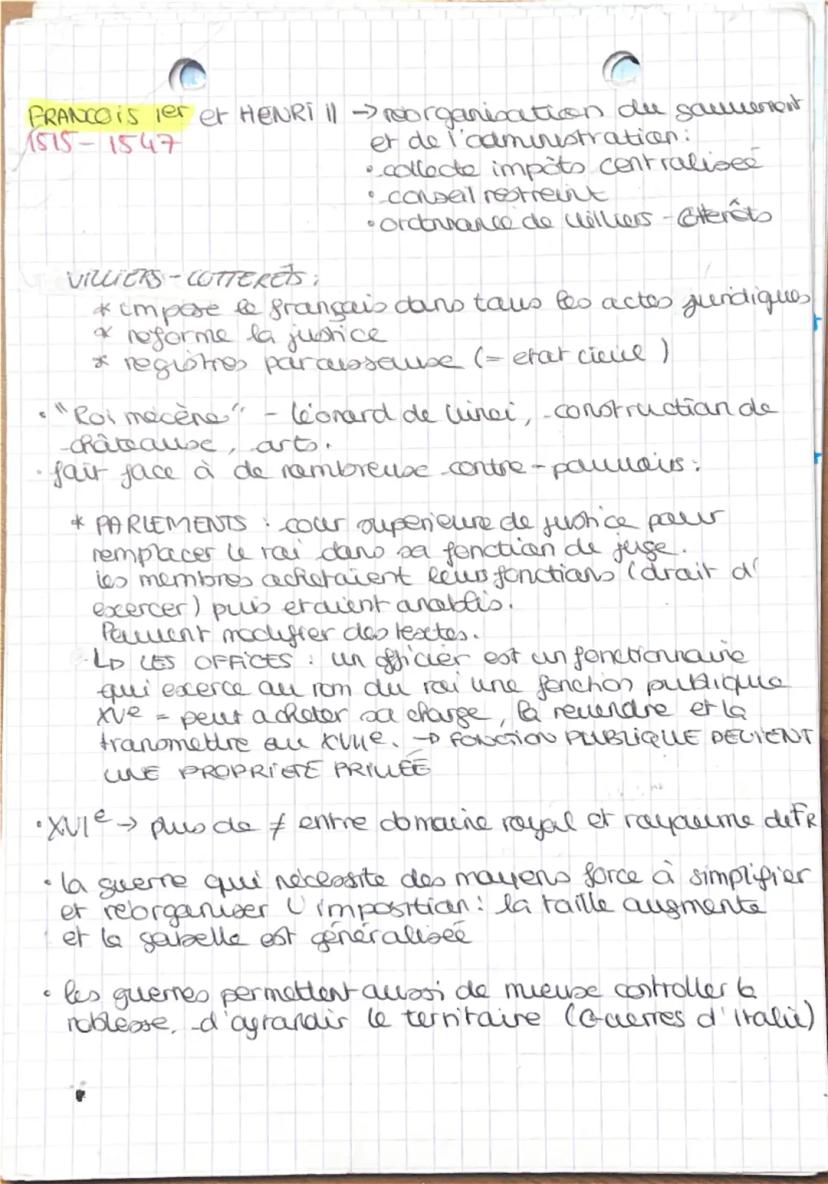 FRANCOIS 1er et HENRI II → reorganisation du gouvernement
1515 - 1547
et de l'administration :
• collecte impôts centralisée
• conseil restreint
• ordonnance de Villiers - Cotterêts
VILLIERS - COTTERETS :
* impose le français dans tous les actes juridiques
* reforme la justice
* registres paroisseaux (= etat civil)
• "Roi mécène" - Léonard de Vinci, construction de
châteaux, arts.
• fait face à de nombreux contre - pouvoirs :
* PARLEMENTS : cour superieure de justice pour
remplacer le roi dans sa fonction de juge.
les membres achetaient leurs fonctions (droit d'
exercer) puis etaient anoblis.
Peuvent modifier des textes.
↳ LES OFFICES : un officier est un fonctionnaire
qui exerce au nom du roi une fonction publique
XVe = peut acheter sa charge, la revendre et la
transmettre au XVIIe. → FONCTION PUBLIQUE DEVIENT
UNE PROPRIETE PRIVÉE
• XVIe → plus de ≠ entre domaine royal et royaume de FR
• la guerre qui nécessite des moyens force à simplifier
et réorganiser l'imposition : la taille augmente
et la gabelle est généralisée
• les guerres permettent aussi de mieux controller la
noblesse, d'agrandir le territoire (Guerres d'Italie)